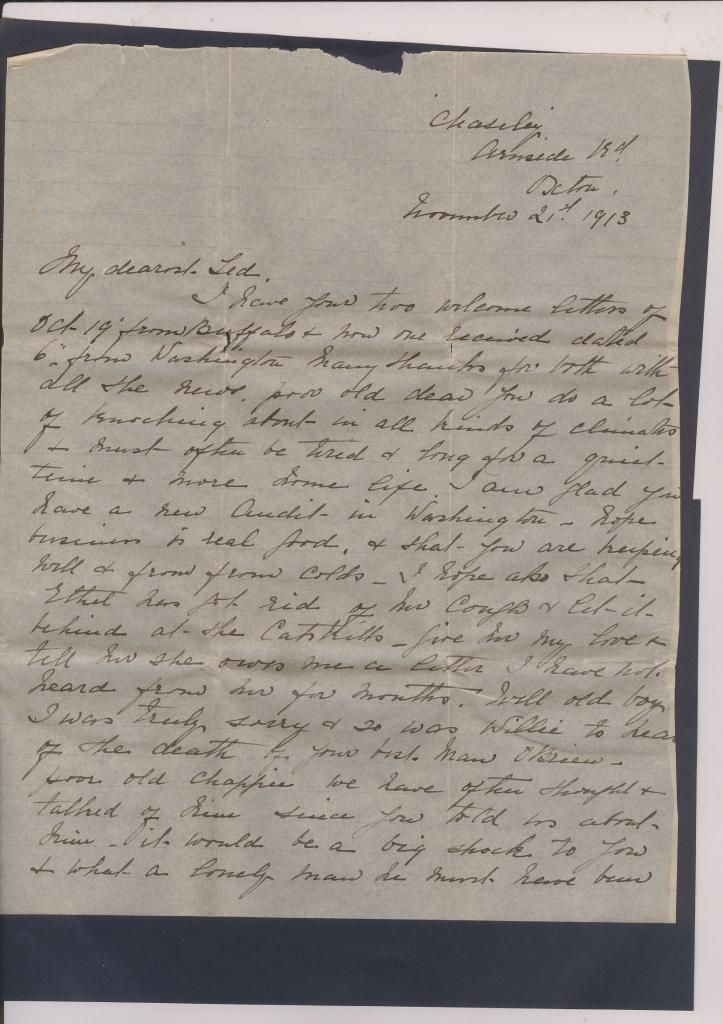 "Chaseley"
Arnside Rd.
Oxton.
November 21st 1913
My dearest Ted.
I have your two welcome letters of
Oct 19" from Buffalo & now one received dated
6" from Washington many thanks for both with
all the news. poor old dear you do a lot
of knocking about in all kinds of climates
& must often be tired & long for a quiet
time & more home life. I am glad you
have a new audit in Washington - hope
business is real good, & that you are keeping
well & free from colds - I hope also that
Ethel has got rid of her cough & let it
behind at the Catskills - give her my love &
tell her she owes me a letter I have not
heard from her for months. Well old boy
I was truly sorry & so was Willie to hear
of the death of your best man O'Brien -
poor old chappie we have often thought &
talked of him since you told us about
him - it would be a big shock to you
& what a lonely man he must have been